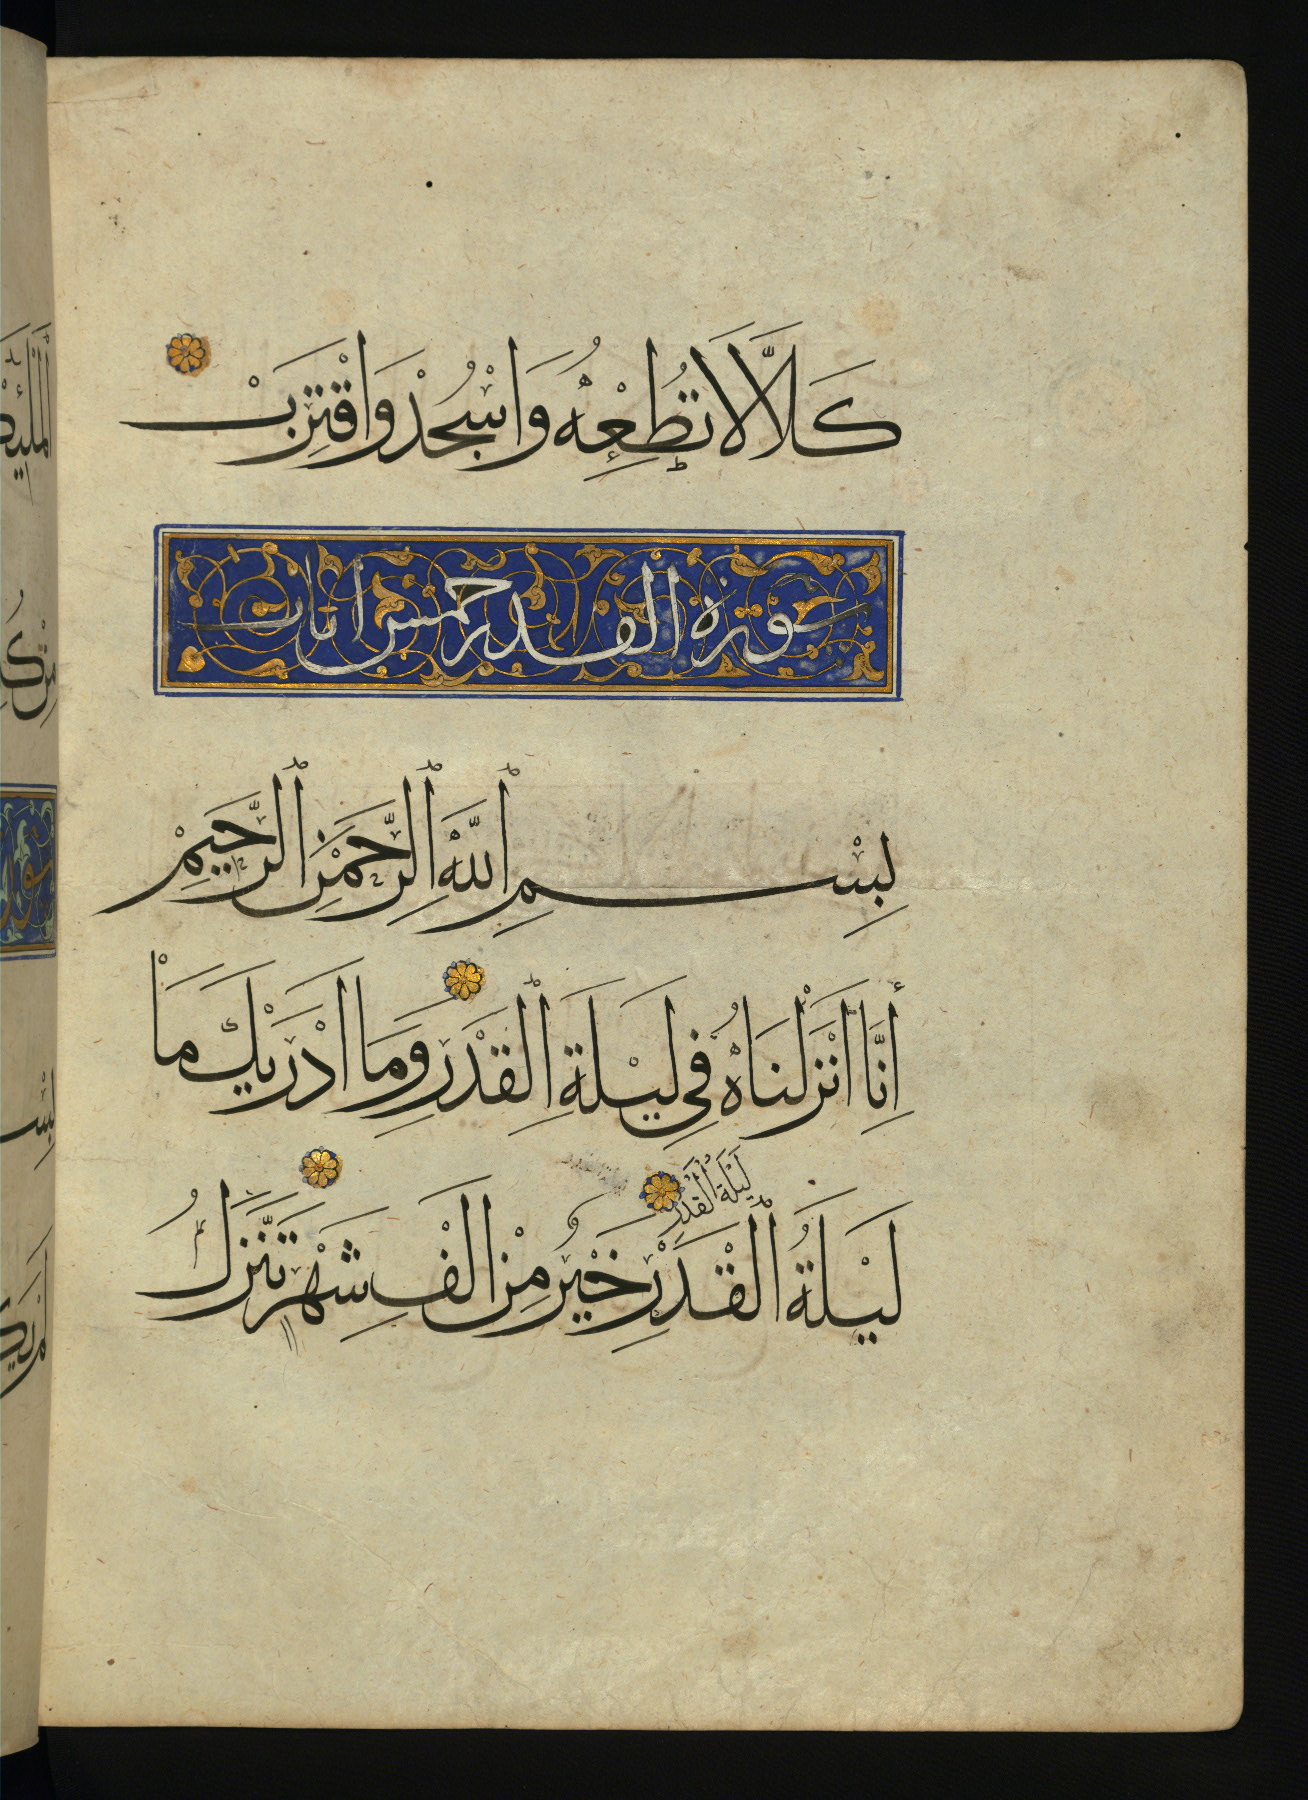 كَلَّا لَا تُطِعْهُ وَاسْجُدْ وَاقْتَرِبْ
سورة القدر خمس آيات
بِسْمِ اللَّهِ الرَّحْمَنِ الرَّحِيمِ
إِنَّا أَنْزَلْنَاهُ فِي لَيْلَةِ الْقَدْرِ وَمَا أَدْرَيكَ مَا
لَيْلَةُ الْقَدْرِ لَيْلَةُ الْقَدْرِ خَيْرٌ مِنْ أَلْفِ شَهْرٍ تَنَزَّلُ